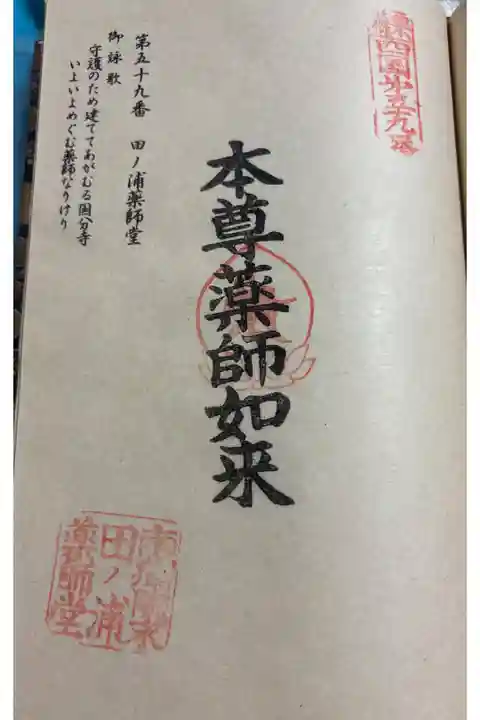 四国第五十九番
本尊薬師如来
第五十九番 田ノ浦薬師堂
御詠歌
守護のため建ててあがむる国分寺
いよいよめぐむ薬師なりけり
田ノ浦
薬師堂